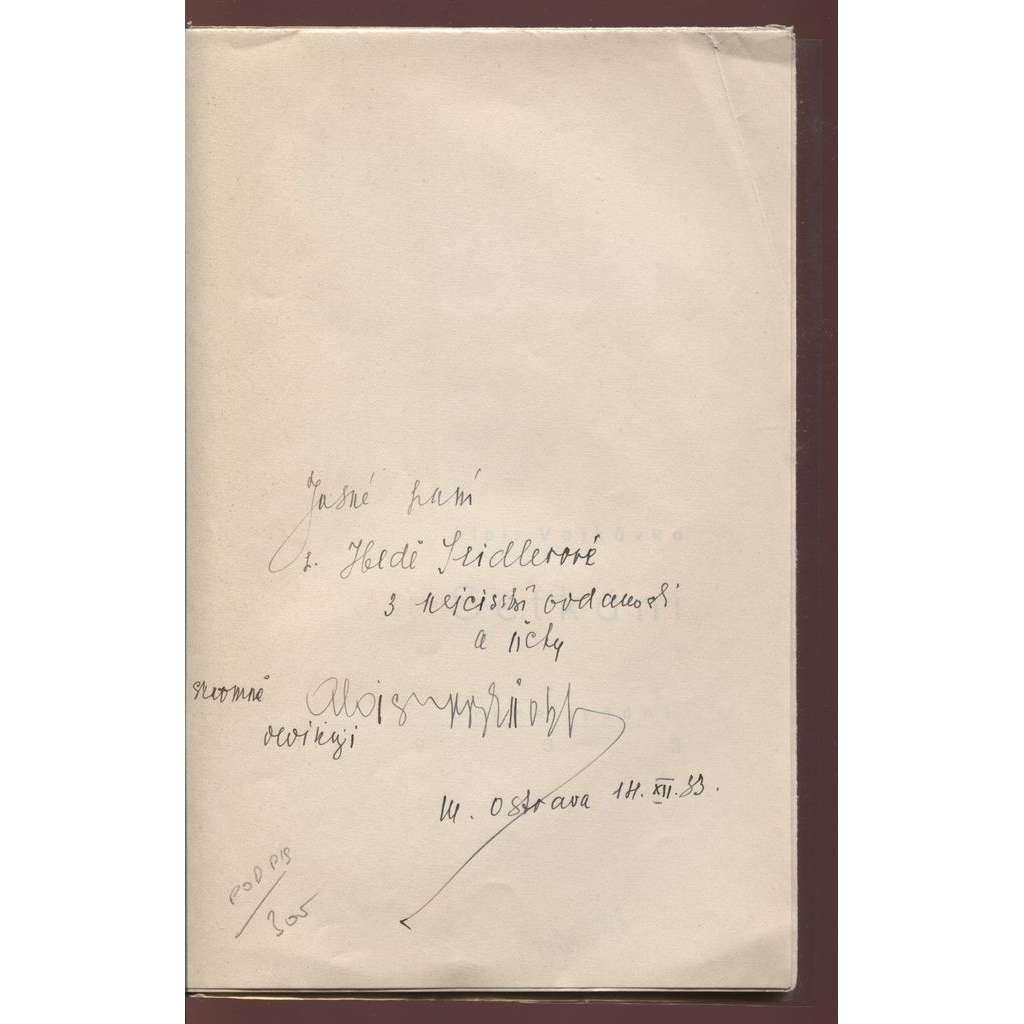 Jasné paní
p. Hedě Seidlerové
z nejčistší oddanosti
a úcty
skromně Alois
věnuji
M. Ostrava 14. XII. 33.
PODPIS
305